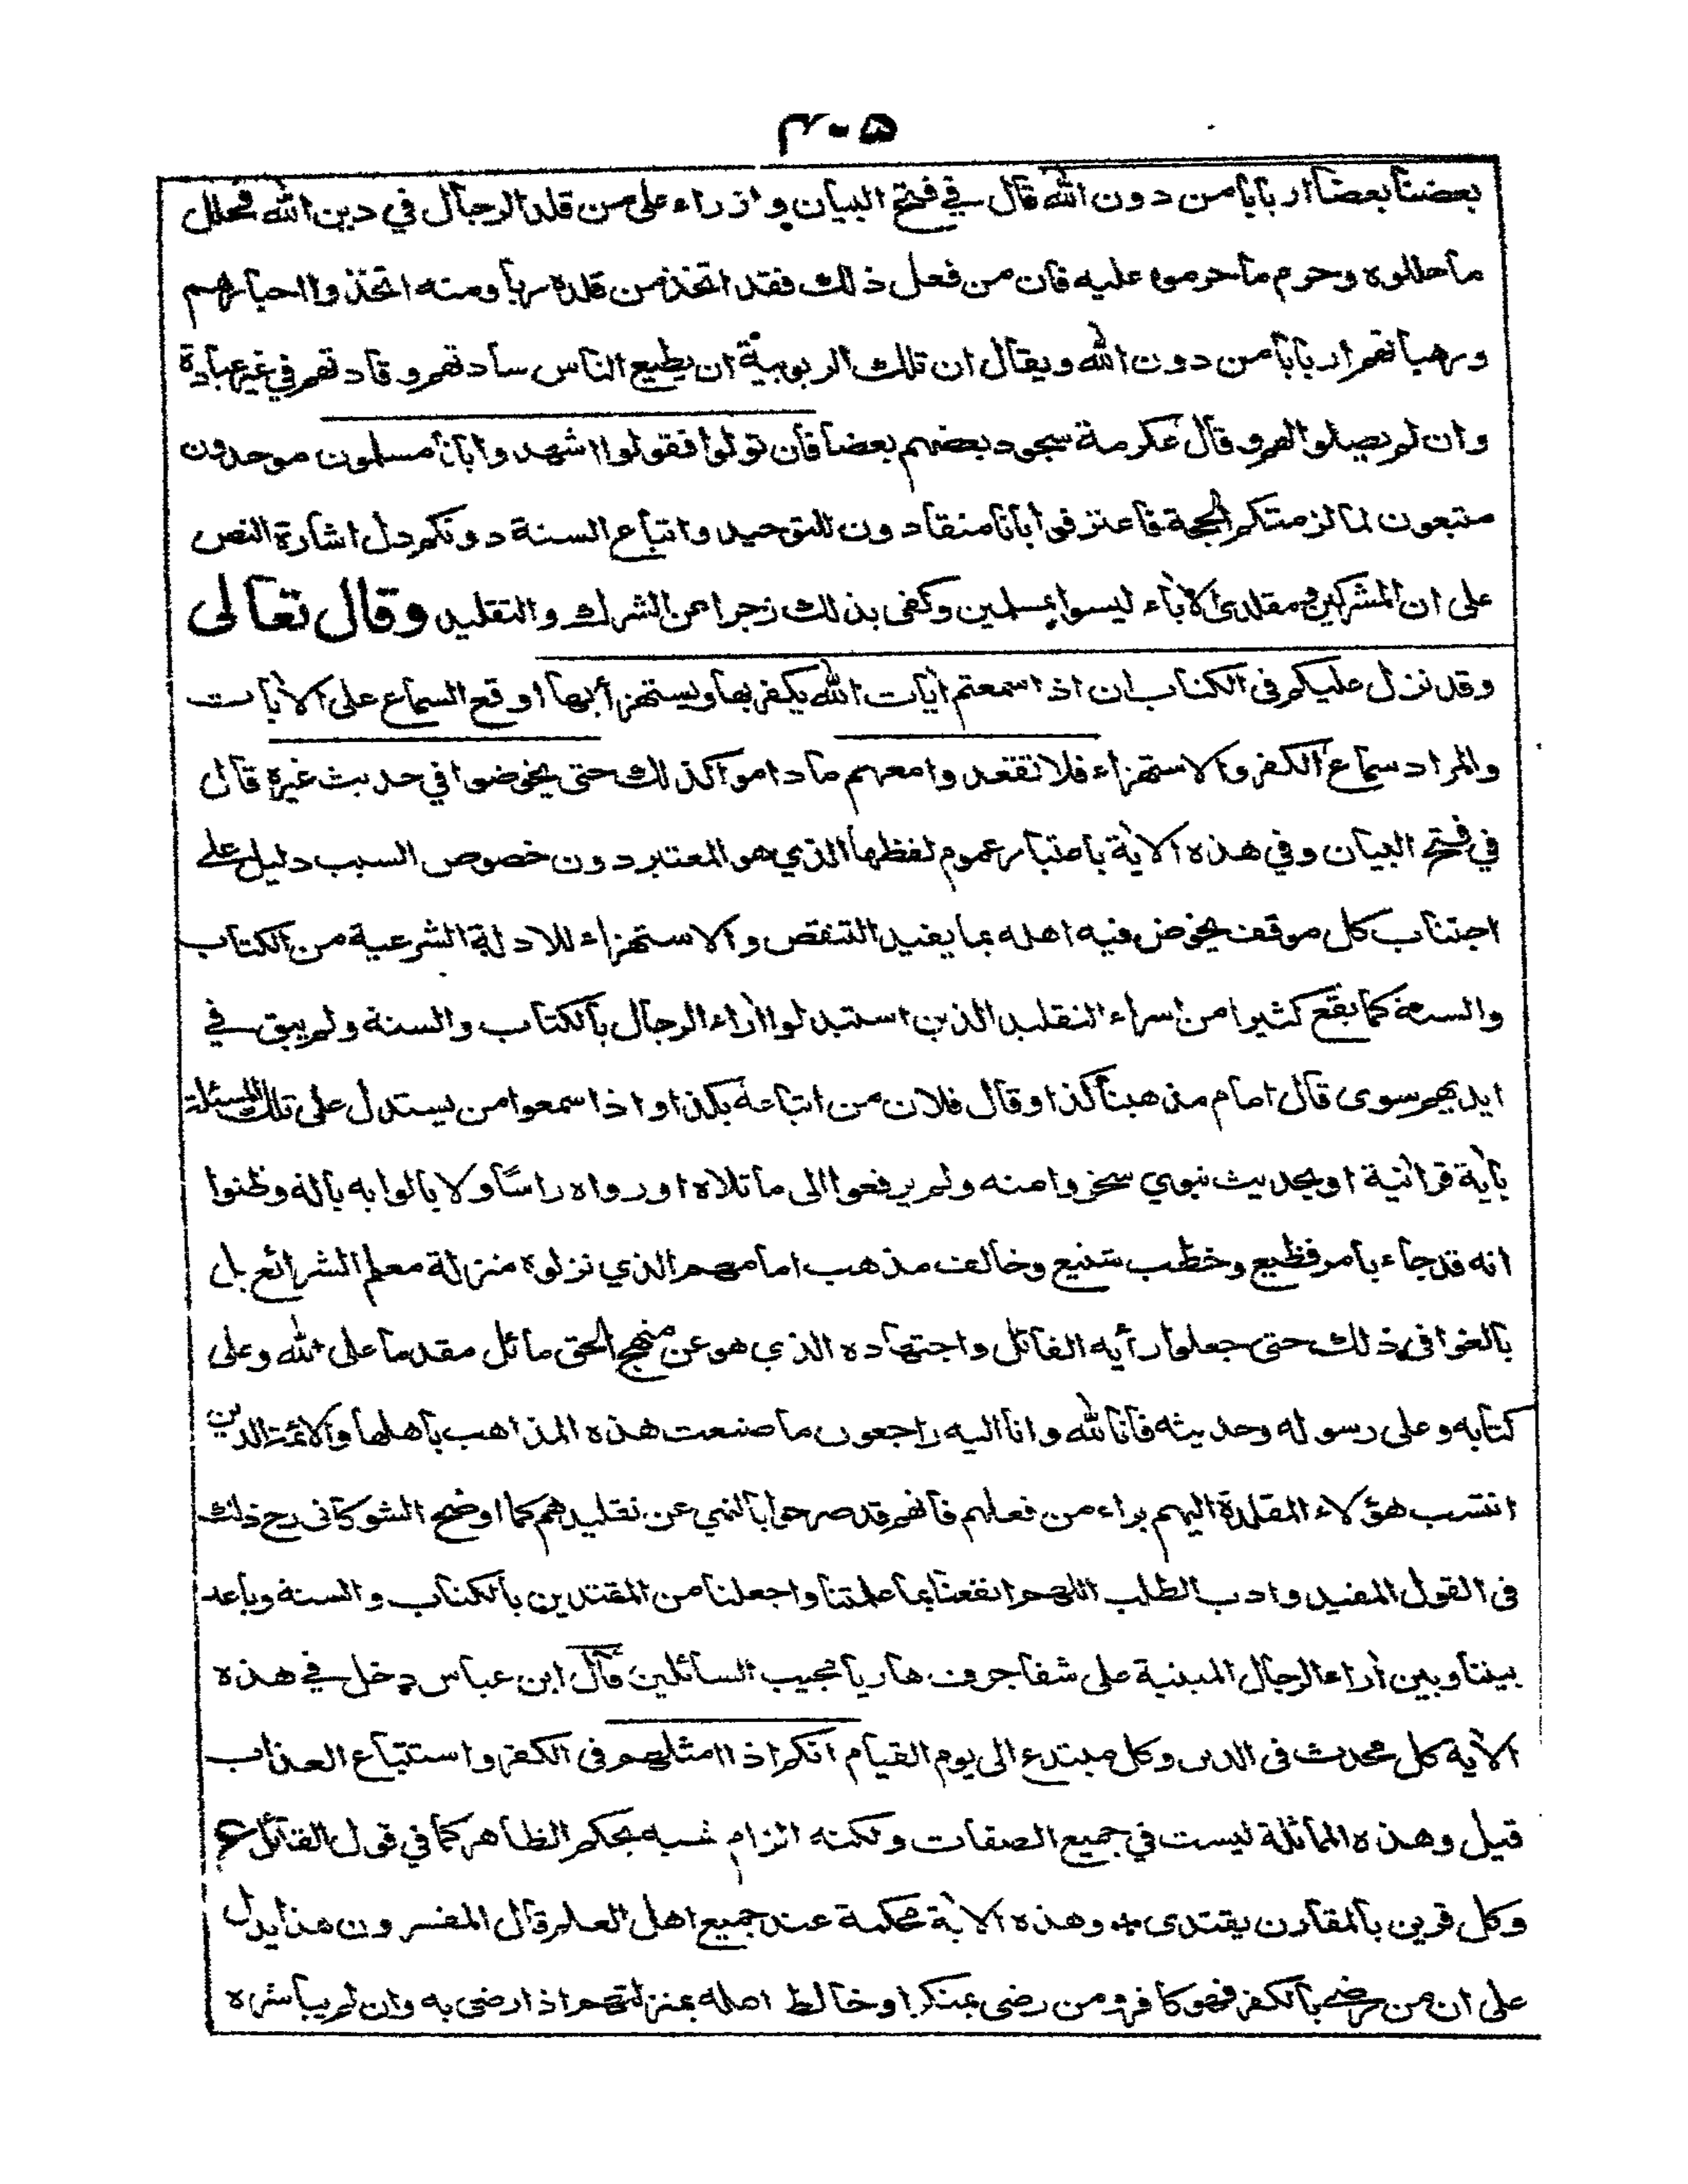 ٣٠٥
بعضنا بعضا اربابا من دون الله قال في فتح البيان وازراء على من قلد الرجال في دين الله فحلل
ما حللوه وحرم ما حرموا عليه فان من فعل ذلك فقد اتخذ من قلده ربا ومنه اتخذوا احبارهم
ورهبانهم اربابا من دون الله ويقال ان تلك الربوبية ان يطيع الناس سادتهم وقادتهم في غير عبادة
وان لم يصلوا لهم وقال عكرمة سجود بعضهم بعضا فان تولوا فقولوا اشهدوا بانا مسلمون موحدون
متبعون لما لزمتكم الحجة فاعترفوا بانا منقادون للتوحيد واتباع السنة دونكم دل اشارة النص
على ان المشركين ومقلدى الاباء ليسوا بمسلمين وكفى بذلك زجرا عن الشرك والتقليد وقال تعالى
وقد نزل عليكم فى الكتاب ان اذا سمعتم اٰيات الله يكفر بها ويستهزأ بها اوقع السماع على الاٰيات
والمراد سماع الكفر والاستهزاء فلا تقعدوا معهم ما داموا كذلك حتى يخوضوا في حديث غيره قال
في فتح البيان وفي هذه الاٰية باعتبار عموم لفظها الذي هو المعتبر دون خصوص السبب دليل على
اجتناب كل موقف يخوض فيه اهله بما يفيد التنقص والاستهزاء للادلة الشرعية من الكتاب
والسنة كما يقع كثيرا من اسراء التقليد الذين استبدلوا اٰراء الرجال بالكتاب والسنة ولم يبق في
ايديهم سوى قال امام مذهبنا كذا وقال فلان من اتباعه بكذا واذا سمعوا من يستدل على تلك المسئلة
باٰية قراٰنية او بحديث نبوي سخروا منه ولم يرفعوا الى ما تلاه او رواه راسًا ولا بالوا به بالة وظنوا
انه قد جاء بامر فظيع وخطب شنيع وخالف مذهب امامهم الذي نزلوه منزلة معلم الشرائع بل
بالغوا في ذلك حتى جعلوا رأيه الفائل واجتهاده الذي هو عن منهج الحق مائل مقدما على الله وعلى
كتابه وعلى رسوله وحديثه فانا لله وانا اليه راجعون ما صنعت هذه المذاهب باهلها والائمة الذين
انتسب هؤلاء المقلدة اليهم براء من فعلهم فانهم قد صرحوا بالنهي عن تقليدهم كما اوضح الشوكانى رح ذلك
فى القول المفيد وادب الطلب اللهم انفعنا بما علمتنا واجعلنا من المقتدين بالكتاب والسنة وباعد
بيننا وبين اٰراء الرجال المبنية على شفا جرف هار يا مجيب السائلين قال ابن عباس دخل في هذه
الاٰية كل محدث فى الدين وكل مبتدع الى يوم القيام انكم اذا مثلهم فى الكفر واستتباع العذاب
قيل وهذه المماثلة ليست في جميع الصفات ولكنه الزام شبه بحكم الظاهر كما في قول القائل ع
وكل قرين بالمقارن يقتدى * وهذه الاٰية محكمة عند جميع اهل العلم قال المفسرون هذا يدل
على ان من رضي بالكفر فهو كافر ومن رضى بمنكر او خالط اهله بمنزلتهم اذا رضى به وان لم يباشره